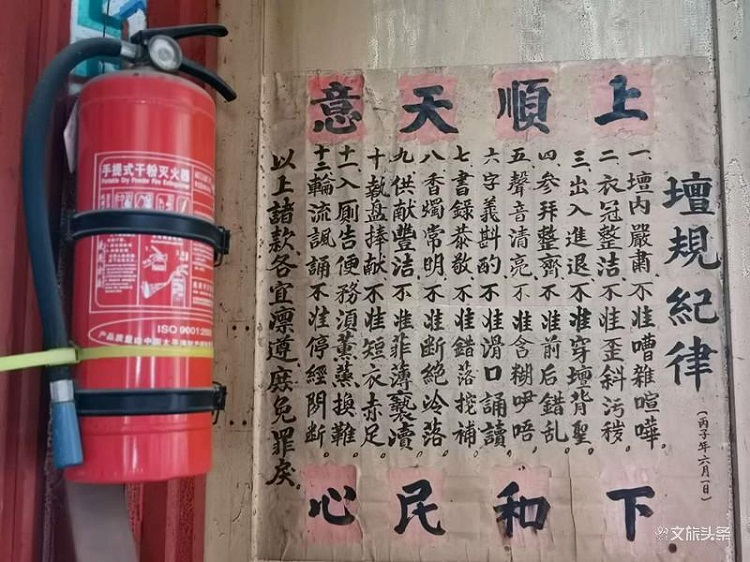 上順天意
壇規紀律
(丙子年六月一日)
一.壇内嚴肅.不准嘈雜喧嘩.
二.衣冠整洁.不准歪斜污秽.
三.出入進退.不准穿壇背聖.
四.参拜整齊.不准前后錯乱.
五.聲音清亮.不准含糊咿唔
六.字義斟酌.不准滑口誦讀
七.書錄恭敬.不准錯落挖補.
八.香燭常明.不准断絶冷落
九.供献豐洁.不准菲薄褻瀆
十.執盘捧献.不准短衣赤足.
十一.入厕告便務須薰蕉換難.
十二.輪流諷誦不准停經間断.
以上諸款各宜凛遵.庶免罪戾.
下和民心
手提式干粉灭火器
Portable Dry Powder Fire Extinguisher
ISO 9001:2000
文旅头条